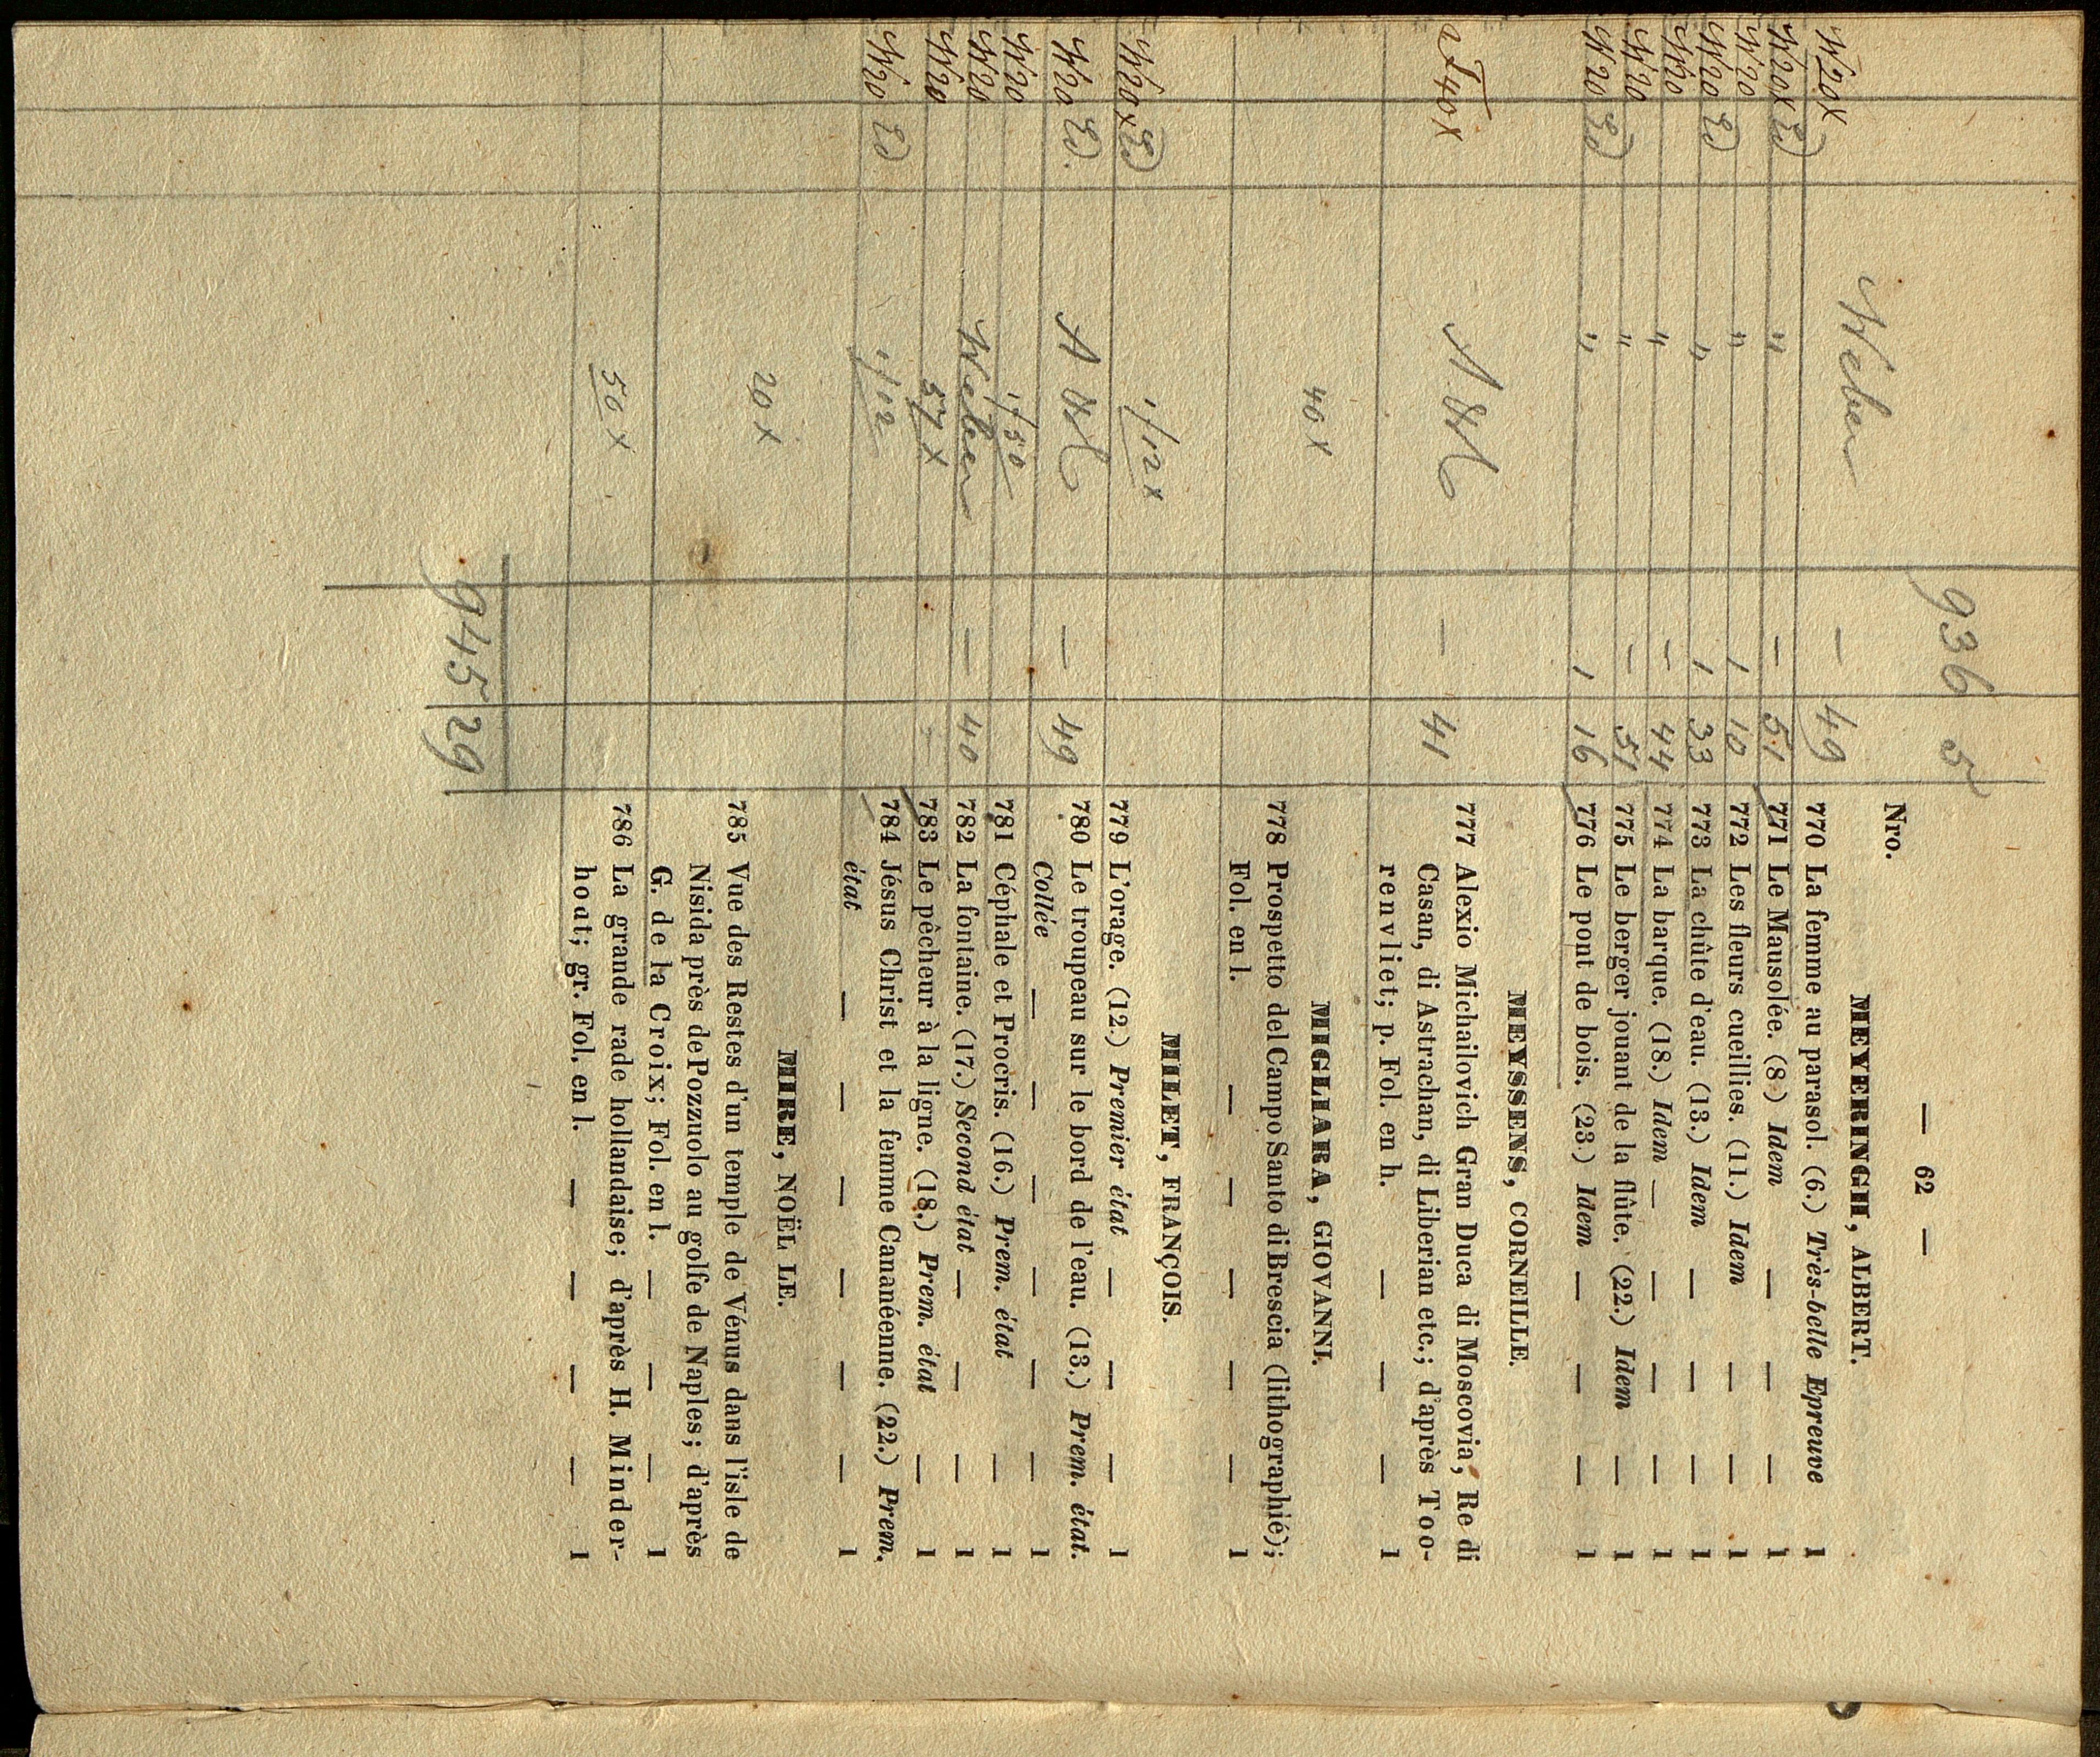 — 62 —
936 5
Nro.
MEYERINGH, ALBERT.
W20x Weber — 49 770 La femme au parasol. (6.) Très-belle Epreuve 1
W20x " — 51 771 Le Mausolée. (8.) Idem — — — 1
W20 " 1 10 772 Les fleurs cueillies. (11.) Idem — — 1
W20 " 1 33 773 La chûte d'eau. (13.) Idem — — — 1
W20 " — 44 774 La barque. (18.) Idem — — — — 1
W20 " — 51 775 Le berger jouant de la flûte. (22.) Idem — 1
W20 " 1 16 776 Le pont de bois. (23.) Idem — — — 1
MEYSSENS, CORNEILLE.
40x — 41 777 Alexio Michailovich Gran Duca di Moscovia, Re di
Casan, di Astrachan, di Liberian etc.; d'après Too-
renvliet; p. Fol. en h. — — — 1
MIGLIARA, GIOVANNI.
40x 778 Prospetto del Campo Santo di Brescia (lithographié);
Fol. en l. — — — — — 1
MILET, FRANÇOIS.
W20x 1f12x 779 L'orage. (12.) Premier état — — — 1
W20 — 49 780 Le troupeau sur le bord de l'eau. (13.) Prem. état.
Collée — — — — — — 1
W20 1f50 781 Céphale et Procris. (16.) Prem. état — 1
W20 Weber — 40 782 La fontaine. (17.) Second état — — — 1
W20 57x 783 Le pêcheur à la ligne. (18.) Prem. état — 1
W20 1f02 784 Jésus Christ et la femme Cananéenne. (22.) Prem.
état — — — — — — 1
MIRE, NOËL LE.
20x 785 Vue des Restes d'un temple de Vénus dans l'isle de
Nisida près de Pozzuolo au golfe de Naples; d'après
G. de la Croix; Fol. en l. — — — 1
50x 786 La grande rade hollandaise; d'après H. Minder-
hoat; gr. Fol. en l. — — — — 1
945 29